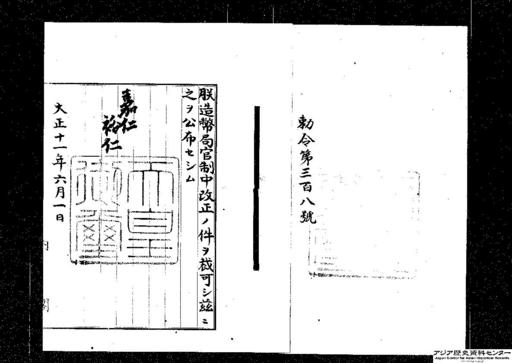 勅令第三百八號
朕造幣局官制中改正ノ件ヲ裁可シ茲ニ
之ヲ公布セシム
嘉仁
裕仁
天皇
御璽
大正十一年六月一日
内閣
アジア歴史資料センター
Japan Center for Asian Historical Records